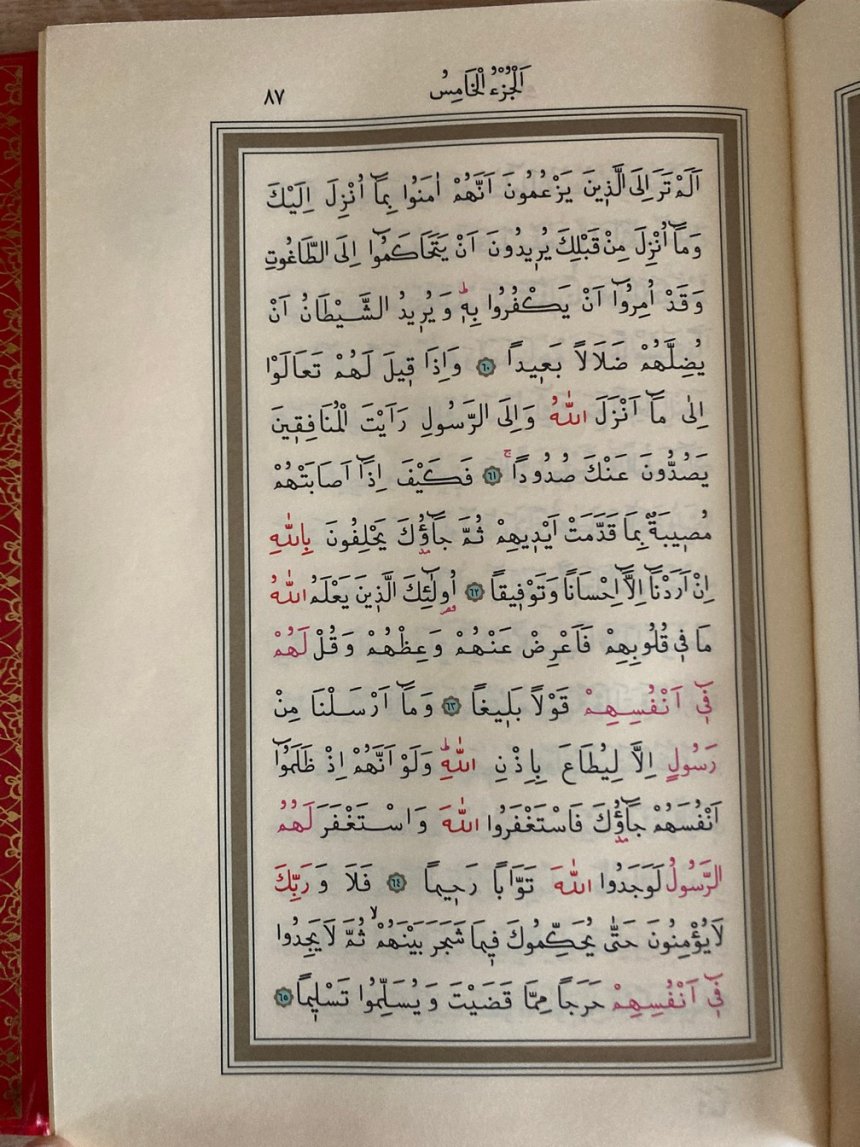 اَلْجُزْءُ الْخَامِسُ
٨٧
اَلَمْ تَرَ اِلَى الَّذ۪ينَ يَزْعُمُونَ اَنَّهُمْ اٰمَنُوا بِمَٓا اُنْزِلَ اِلَيْكَ
وَمَٓا اُنْزِلَ مِنْ قَبْلِكَ يُر۪يدُونَ اَنْ يَتَحَاكَمُٓوا اِلَى الطَّاغُوتِ
وَقَدْ اُمِرُٓوا اَنْ يَكْفُرُوا بِه۪ۜ وَيُر۪يدُ الشَّيْطَانُ اَنْ
يُضِلَّهُمْ ضَلَالاً بَع۪يداً ﴿٦٠﴾ وَاِذَا ق۪يلَ لَهُمْ تَعَالَوْا
اِلٰى مَٓا اَنْزَلَ اللّٰهُ وَاِلَى الرَّسُولِ رَاَيْتَ الْمُنَافِق۪ينَ
يَصُدُّونَ عَنْكَ صُدُوداًۚ ﴿٦١﴾ فَكَيْفَ اِذَٓا اَصَابَتْهُمْ
مُص۪يبَةٌ بِمَا قَدَّمَتْ اَيْد۪يهِمْ ثُمَّ جَٓاؤُ۫كَ يَحْلِفُونَ بِاللّٰهِ
اِنْ اَرَدْنَٓا اِلَّٓا اِحْسَاناً وَتَوْف۪يقاً ﴿٦٢﴾ اُو۬لٰٓئِكَ الَّذ۪ينَ يَعْلَمُ اللّٰهُ
مَا ف۪ي قُلُوبِهِمْ فَاَعْرِضْ عَنْهُمْ وَعِظْهُمْ وَقُلْ لَهُمْ
ف۪ٓي اَنْفُسِهِمْ قَوْلاً بَل۪يغاً ﴿٦٣﴾ وَمَٓا اَرْسَلْنَا مِنْ
رَسُولٍ اِلَّا لِيُطَاعَ بِاِذْنِ اللّٰهِۜ وَلَوْ اَنَّهُمْ اِذْ ظَلَمُٓوا
اَنْفُسَهُمْ جَٓاؤُ۫كَ فَاسْتَغْفَرُوا اللّٰهَ وَاسْتَغْفَرَ لَهُمُ
الرَّسُولُ لَوَجَدُوا اللّٰهَ تَوَّاباً رَح۪يماً ﴿٦٤﴾ فَلَا وَرَبِّكَ
لَا يُؤْمِنُونَ حَتّٰى يُحَكِّمُوكَ ف۪يمَا شَجَرَ بَيْنَهُمْۙ ثُمَّ لَا يَجِدُوا
ف۪ٓي اَنْفُسِهِمْ حَرَجاً مِمَّا قَضَيْتَ وَيُسَلِّمُوا تَسْل۪يماً ﴿٦٥﴾